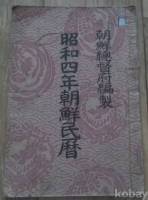 朝鮮總督府編製
昭和四年朝鮮民曆
kobay